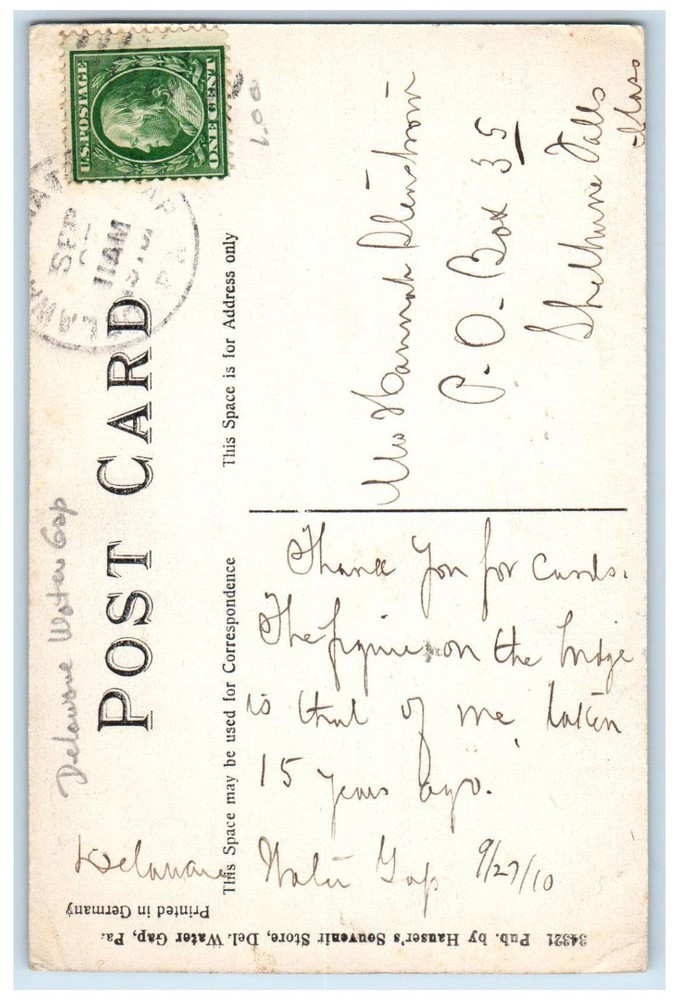 Delaware Water Gap
POST CARD
U.S. POSTAGE
ONE CENT
SEP
11 AM
PA
1.00
This Space may be used for Correspondence
This Space is for Address only
Thank You for Cards.
The figure on the bridge
is that of me, taken
15 years ago.
Delaware Water Gap 9/27/10
Hannah
P.O. Box 35
Shelburne Falls
Mass
34321 Pub. by Hauser's Souvenir Store, Del. Water Gap, Pa.
Printed in Germany